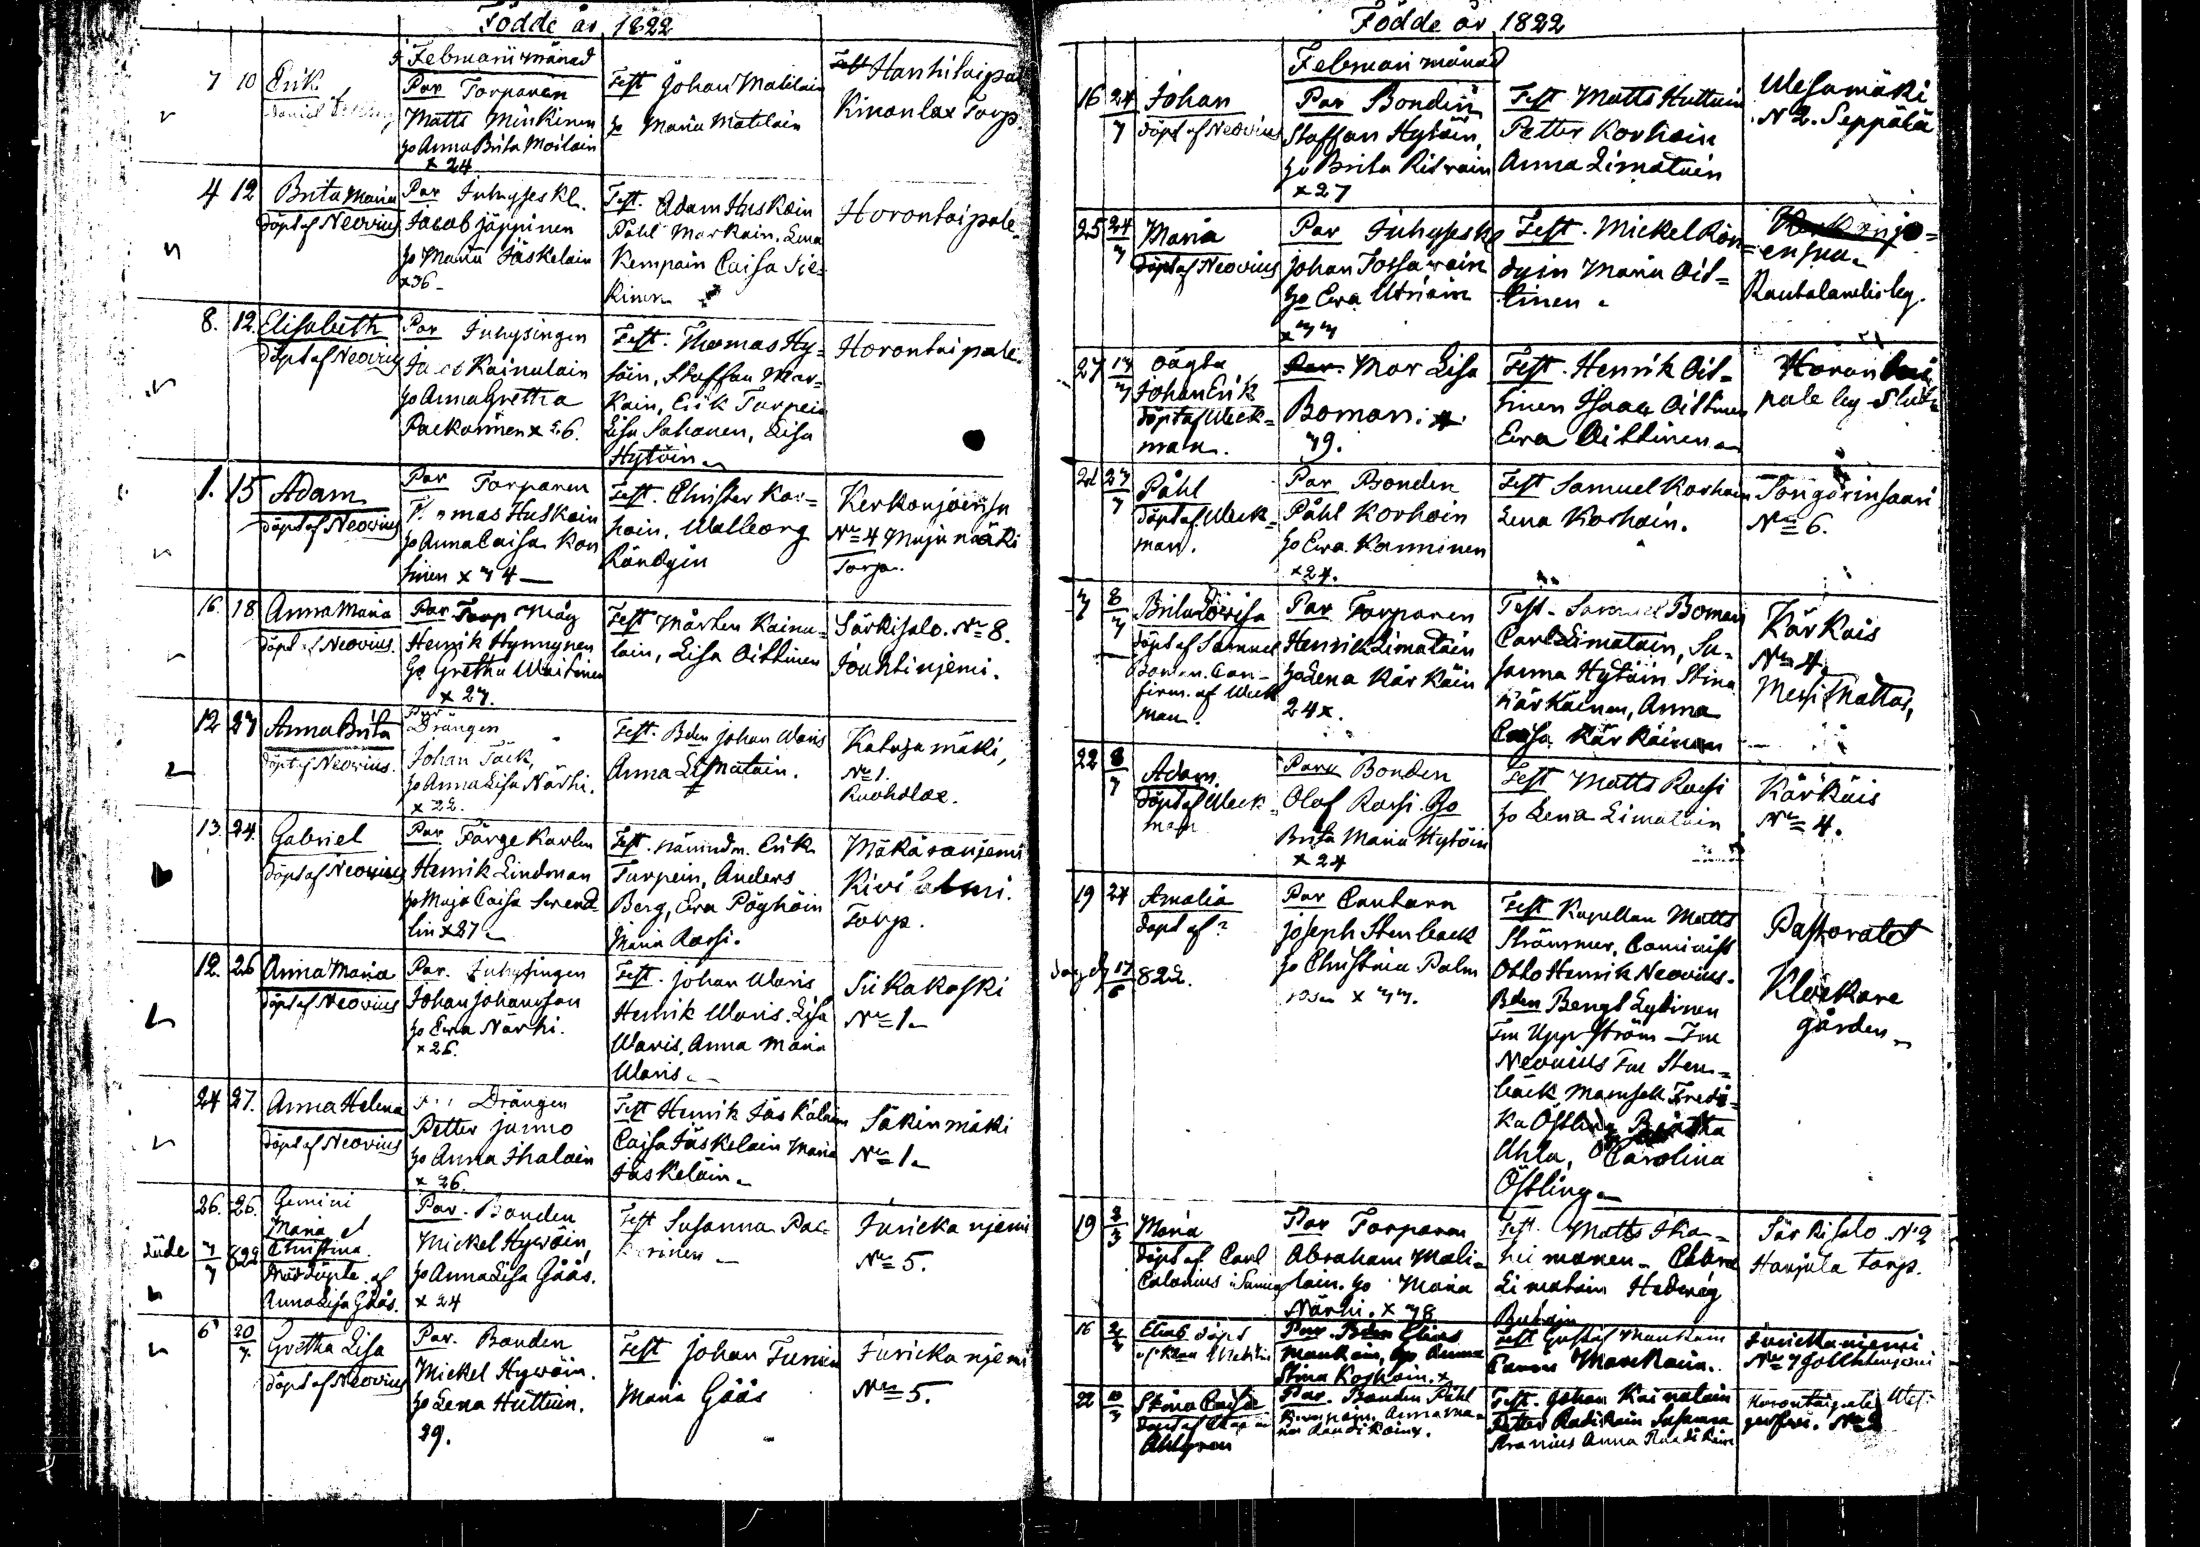 Födde år 1822
Februarii månad
7 10 Erik
Par Torparen
Matts Minkinen
ho Anna Brita Moilain
x 24
Test Johan Matilain
ho Maria Matilain
Hanhitaipal
Kinonlax Torp.
4 12 Brita Maria
döpt af Neovius
Par Inhyses kl.
Jacob Jäppinen
ho Maria Jäskelain
x 36
Test. Adam Huskain
Påhl Markain, Lena
Kempain Caisa Sie-
kinen
Horontaipale
8. 12. Elisabeth
döpt af Neovius
Par Inhysingen
Kainulain
ho Anna Gretha
Packarinen x 26.
Test. Thomas Hy-
töin, Staffan Mar-
kain, Erik Turpein
Lisa Sahanen, Lisa
Hytöin
Horontaipale
1. 15 Adam
döpt af Neovius
Par Torparen
Huskain
ho Anna Caisa Kon
tinen x 74
Test. Christer Kor-
hoin, Walborg
Rändyin
Kerkonjoensu
No 4 Mujumäki
Torp.
16. 18 Anna Maria
döpt af Neovius.
Par. Torp Måg
Henrik Hynnynen
ho Gretha Waitinen
x 27.
Test Mårten Kainu-
lain, Lisa Oittinen
Särkisalo. No 8.
Jouhtinjemi.
12 27 Anna Brita
döpt af Neovius.
Par
Drängen
Johan Täck,
ho Anna Lisa Närhi.
x 22.
Test. Bden Johan Waris
Anna Limatain.
Katajamäki,
No 1.
Ruoholax.
13. 24. Gabriel
döpt af Neovius
Par Färgekarlen
Henrik Lindman
ho Maja Caisa Swend-
lin x 27
Test. nämndm. Erik
Turpein, Anders
Berg, Eva Pöyhöin
Maria Rossi.
Mäkäranjemi
Kivisalmi.
Torp.
12. 26 Anna Maria
döpt af Neovius
Par. Inhysingen
Johan Johansson
ho Ewa Närhi.
x 26.
Test. Johan Waris
Henrik Waris. Lisa
Waris, Anna Maria
Waris.
Siikakoski
No 1
24 27. Anna Helena
döpt af Neovius
Drängen
Petter Junno
ho Anna Ihalain
x 26.
Test Henrik Jäskälain
Caisa Jäskelain Maria
Jäskeläin
Säkinmäki
No 1
26. 26. Gemini
Maria et
Christina.
7/7 822
Nöddöpte af
Anna Lisa Gåås.
Par. Bonden
Mickel Hywöin
ho Anna Lisa Gåås.
x 24
Test Susanna Pac-
karinen
Juricka njemi
No 5.
6 20/7. Gretha Lisa
döpt af Neovius
Par. Bonden
Mickel Hywöin.
ho Lena Huttuin.
29.
Test Johan Furuin
Maria Gåås
Juricka njemi
No 5.
Födde år 1822
Februari månad
16 24/7 Johan
döpt af Neovius
Par Bonden
Staffan Hytöin,
ho Brita Ritwain
x 27
Test Matts Huttuin
Petter Korhoin
Anna Limatain
Wesamäki
No 2. Seppälä
25 24/7 Maria
döpt af Neovius
Par Inhyses k
Johan Tossawain
ho Ewa Utriain
x 77
Test. Mickel Rön-
dyin Maria Oit-
tinen
ensuu
Rautalambi leg.
27 17/7 oägta
Johan Erik
döpt af Weck-
man.
Par. Mor Lisa
Boman.
79.
Test. Henrik Oit-
tinen Isaac Oittinen
Ewa Oittinen
Horontai
pale leg
21 27/7 Påhl
döpt af Weck-
man.
Par Bonden
Påhl Korhoin
ho Ewa Kanninen
x 24.
Test Samuel Korhoin
Lena Korhoin.
Tongorinsaari
No 6.
7 8/7 Brita Lovisa
döpt af Samuel
Boman. Con-
firm. af Weck
man.
Par Torparen
Henrik Limatain
ho Lena Kärkäin
24 x.
Test. Samuel Boman
Carl Limatain, Su-
sanna Hytöin Stina
Kärkäinen, Anna
Caisa Kärkäinen
Kärkäis
No 4.
22 8/7 Adam
döpt af Weck-
man
Par Bonden
Olof Rossi ho
Brita Maria Hytöin
x 24
Test Matts Rossi
ho Lena Limatain
Kärkäis
No 4.
19 24 Amalia
döpt af?
17/6 822.
Par Cantorn
Joseph Stenbeck
ho Christina Palm
x 77.
Test Kapellan Matts
Strömmer, Cominist
Otto Henrik Neovius.
Bden Bengt Lytinen
Fru Uppström Fru
Neovius Fru Sten-
bäck Mamsell Fredri-
ka Östling
Uhla, Carolina
Östling
Pastoratet
Klockare
gården
19 3/3 Maria
döpt af Carl
Calonius
Par Torparen
Abraham Mali-
lain. ho Maria
Närhi. x 78
Test. Matts Ika-
heimonen
Limatain Hedwig
Särkisalo No 2
Harjula torp.
16 Elias döpt
Par. Bden Elias
Maukain, ho Anna
Stina Korhoin. x
Test Gustaf Maukain
Maukain.
Juricka niemi
No 7
22 10/3 Stina Caisa
Ahlgren
Par. Bonden Påhl
Anna Ma-
Test. Johan Kainulain
Petter Raudikain Susanna
Anna Raudikain
Horontaipale
No 2